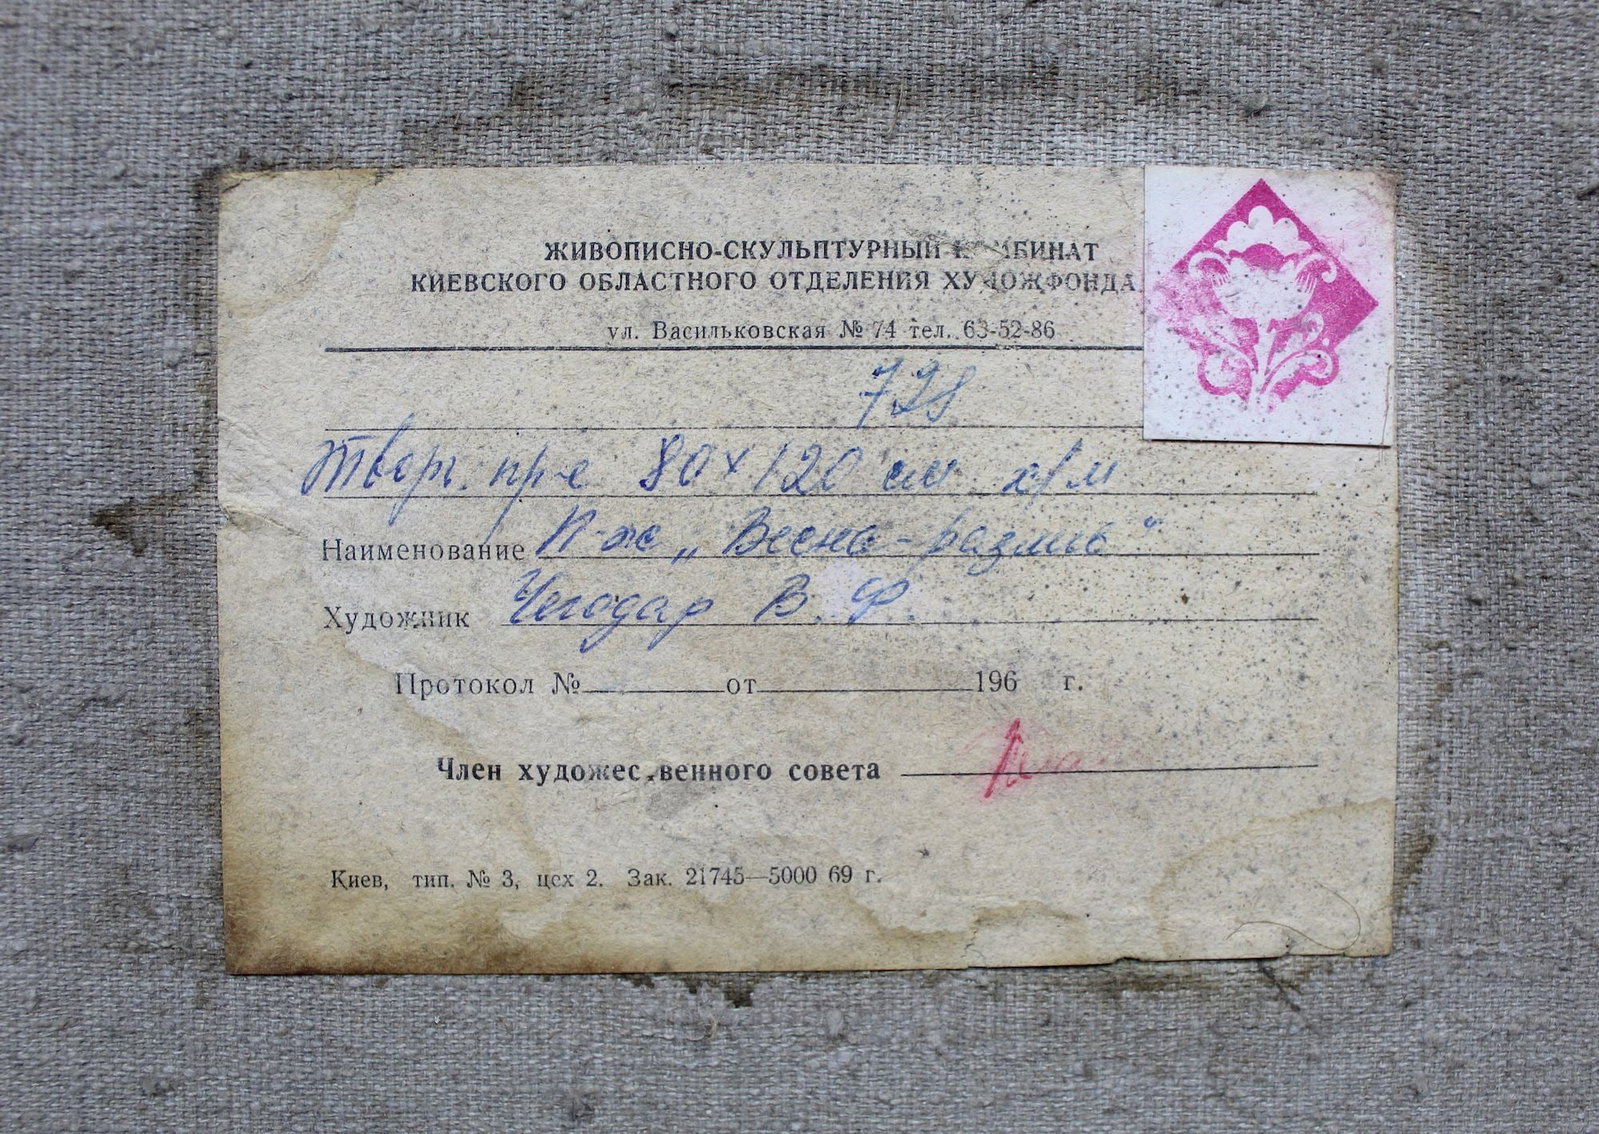 ЖИВОПИСНО-СКУЛЬПТУРНЫЙ КОМБИНАТ
КИЕВСКОГО ОБЛАСТНОГО ОТДЕЛЕНИЯ ХУДОЖФОНДА
ул. Васильковская № 74 тел. 63-52-86
728
Творч. пр-е 80х120 см х/м
Наименование П-ж „Весна-
Художник Чегодар В. Ф.
Протокол № от 196 г.
Член художественного совета
Киев, тип. № 3, цех 2. Зак. 21745—5000 69 г.